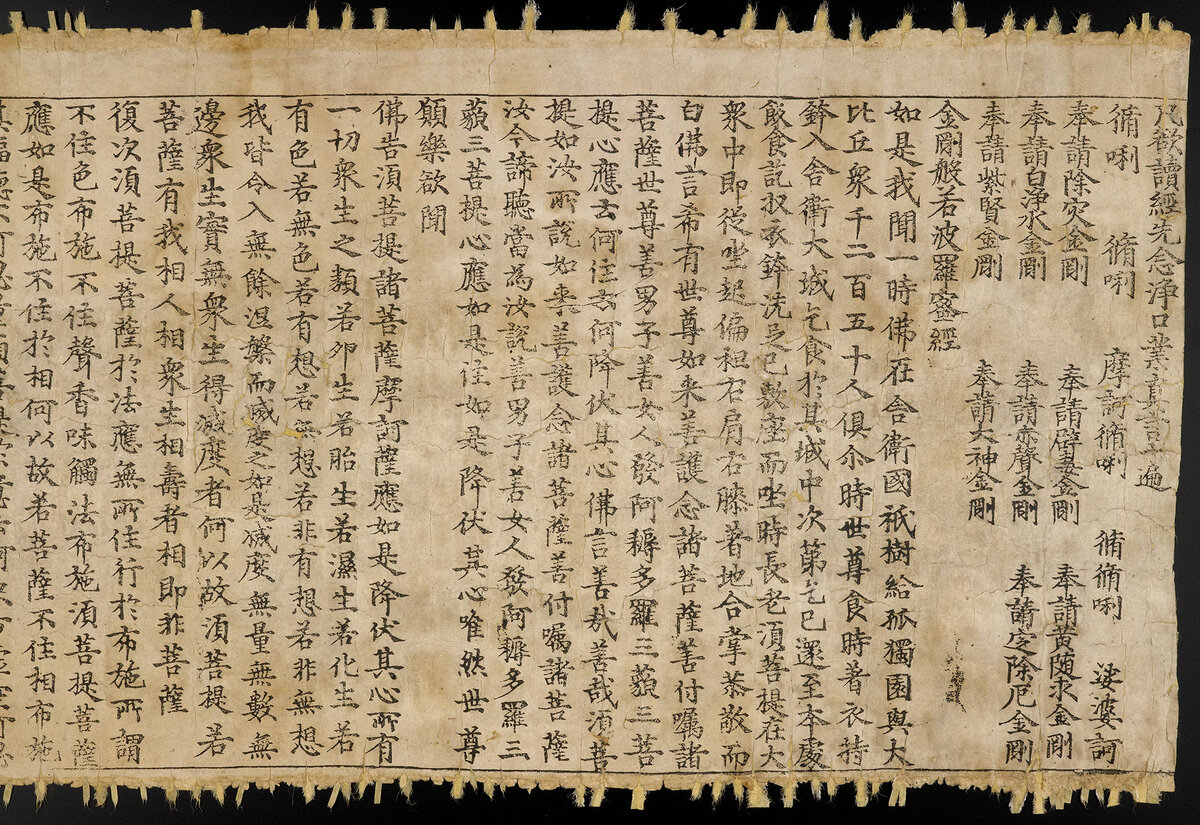 凡欲讀經先念淨口業真言一遍
脩唎 脩唎 摩訶脩唎 脩脩唎 娑婆訶
奉請除灾金剛 奉請辟毒金剛 奉請黃随求金剛
奉請白淨水金剛 奉請赤聲金剛 奉請㝎除厄金剛
奉請紫賢金剛 奉請大神金剛
金剛般若波羅蜜經
如是我聞一時佛在舎衛國祇樹給孤獨園與大
比丘衆千二百五十人俱尒時世尊食時著衣持
鉢入舎衛大城乞食於其城中次第乞已還至本處
飯食訖収衣鉢洗足已敷座而坐時長老湏菩提在大
衆中即從坐起偏袒右肩右膝著地合掌恭敬而
白佛言希有世尊如来善護念諸菩薩善付嘱諸
菩薩世尊善男子善女人發阿耨多羅三藐三菩
提心應云何住云何降伏其心佛言善哉善哉湏菩
提如汝所說如来善護念諸菩薩善付嘱諸菩薩
汝今諦聽當為汝說善男子善女人發阿耨多羅三
藐三菩提心應如是住如是降伏其心唯然世尊
願樂欲聞
佛告湏菩提諸菩薩摩訶薩應如是降伏其心所有
一切衆生之類若夘生若胎生若濕生若化生若
有色若無色若有想若無想若非有想若非無想
我皆令入無餘涅槃而滅度之如是滅度無量無數無
邊衆生實無衆生得滅度者何以故湏菩提若
菩薩有我相人相衆生相壽者相即非菩薩
復次湏菩提菩薩於法應無所住行於布施所謂
不住色布施不住聲香味觸法布施湏菩提菩薩
應如是布施不住於相何以故若菩薩不住相布施